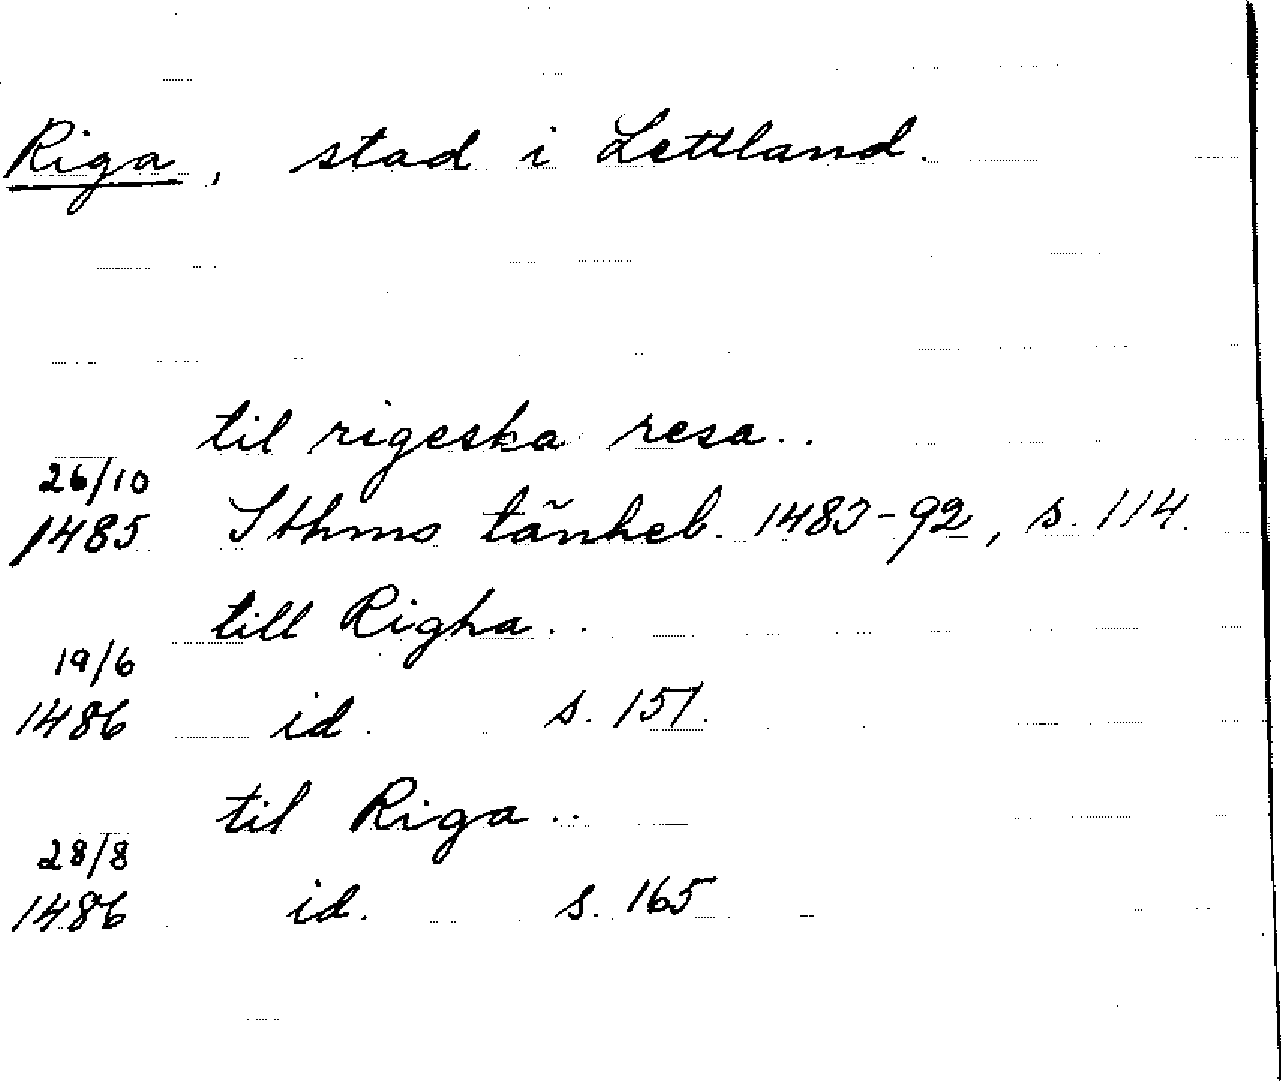 Riga, stad i Lettland.
til rigeska resa..
26/10
1485 Sthms tänkeb. 1483-92, s. 114.
till Righa..
19/6
1486 id. s. 151.
til Riga..
28/8
1486 id. s. 165